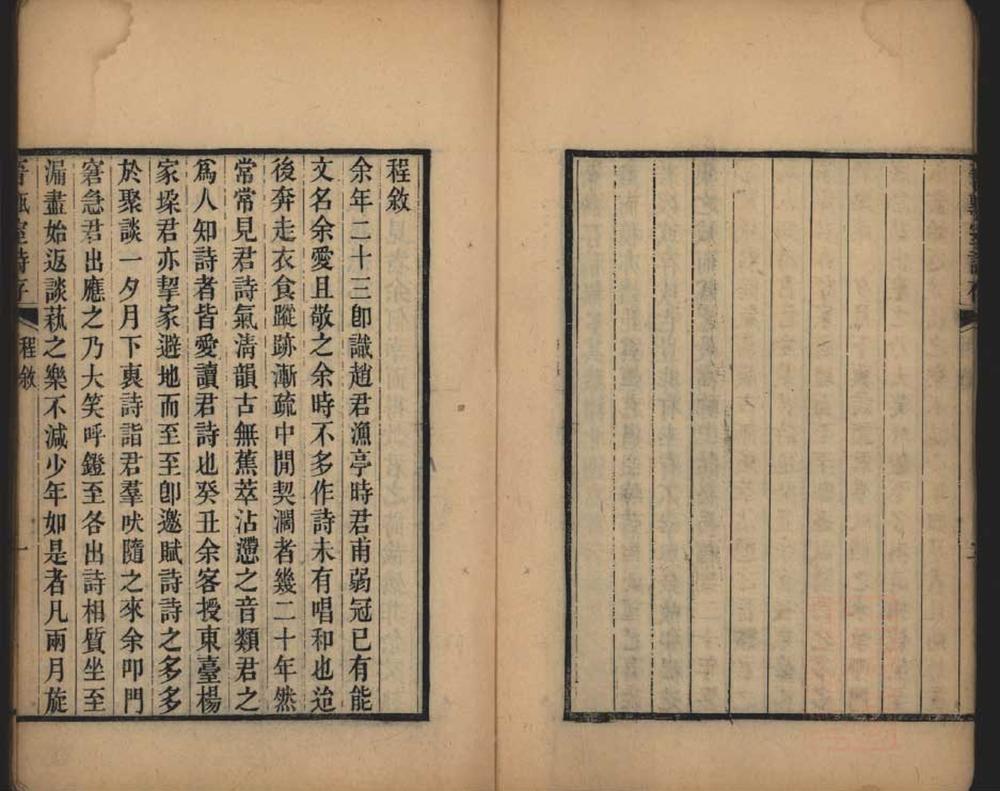 程敘
余年二十三卽識趙君漁亭時君甫弱冠已有能
文名余愛且敬之余時不多作詩未有唱和也迨
後奔走衣食蹤跡漸疏中閒契濶者幾二十年然
常常見君詩氣清韻古無蕉萃沾懘之音類君之
爲人知詩者皆愛讀君詩也癸丑余客授東臺楊
家垛君亦挈家避地而至至卽邀賦詩詩之多多
於聚談一夕月下裏詩詣君羣吠隨之來余叩門
窘急君出應之乃大笑呼鐙至各出詩相質坐至
漏盡始返談蓺之樂不減少年如是者凡兩月旋
室詩存
程敘
一